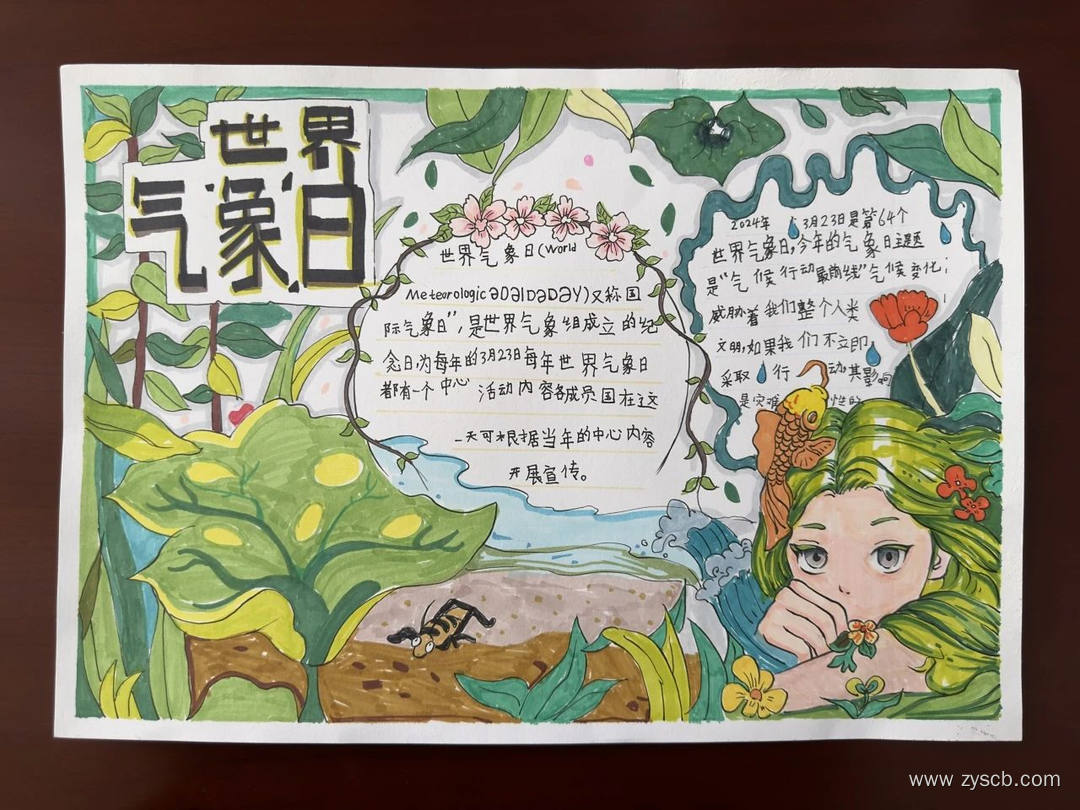 世界
气象日
世界气象日(World
MeteorologicaDalDaDAY)又称国
际气象日",是世界气象组成立的纪
念日,为每年的3月23日每年世界气象日
都有一个中心 活动内容各成员国在这
一天可根据当年的中心内容
开展宣传。
2024年 3月23日是第64个
世界气象日,今年的气象日主题
是"气候行动最前线"气候变化;
威胁着我们整个人类
文明,如果我们不立即
采取 行动其影响
是灾难性的
www.zyscb.com